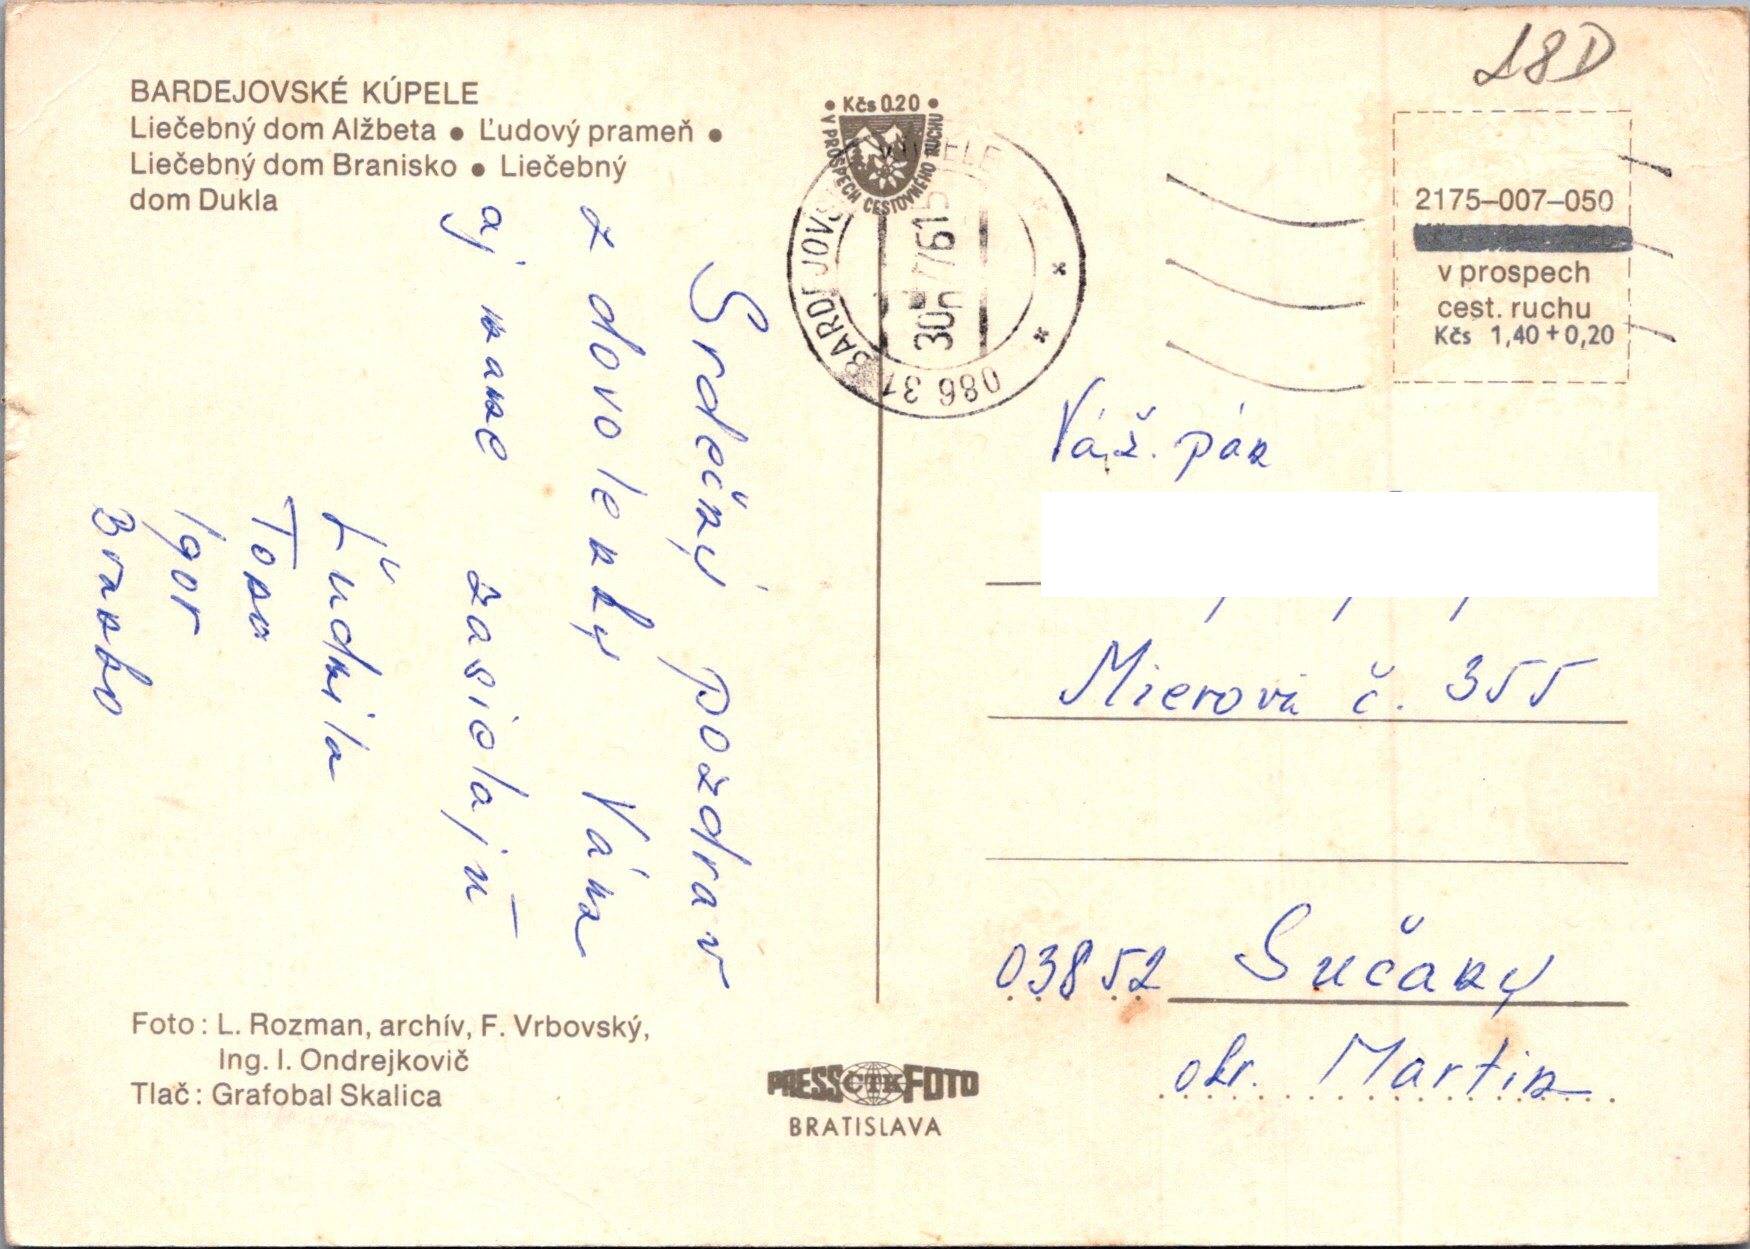 18D
BARDEJOVSKÉ KÚPELE
Liečebný dom Alžbeta ● Ľudový prameň ●
Liečebný dom Branisko ● Liečebný
dom Dukla
● Kčs 0.20 ●
V PROSPECH CESTOVNÉHO RUCHU
086 31
2175–007–050
v prospech
cest. ruchu
Kčs 1,40 + 0,20
Srdečný pozdrav
z dovolenky Vám
aj mame zasielajú
Ľudmila
Tono
Igor
Branko
Váž. pán
Mierová č. 355
03852 Sučany
okr. Martin
Foto: L. Rozman, archív, F. Vrbovský,
Ing. I. Ondrejkovič
Tlač: Grafobal Skalica
PRESS ČTK FOTO
BRATISLAVA